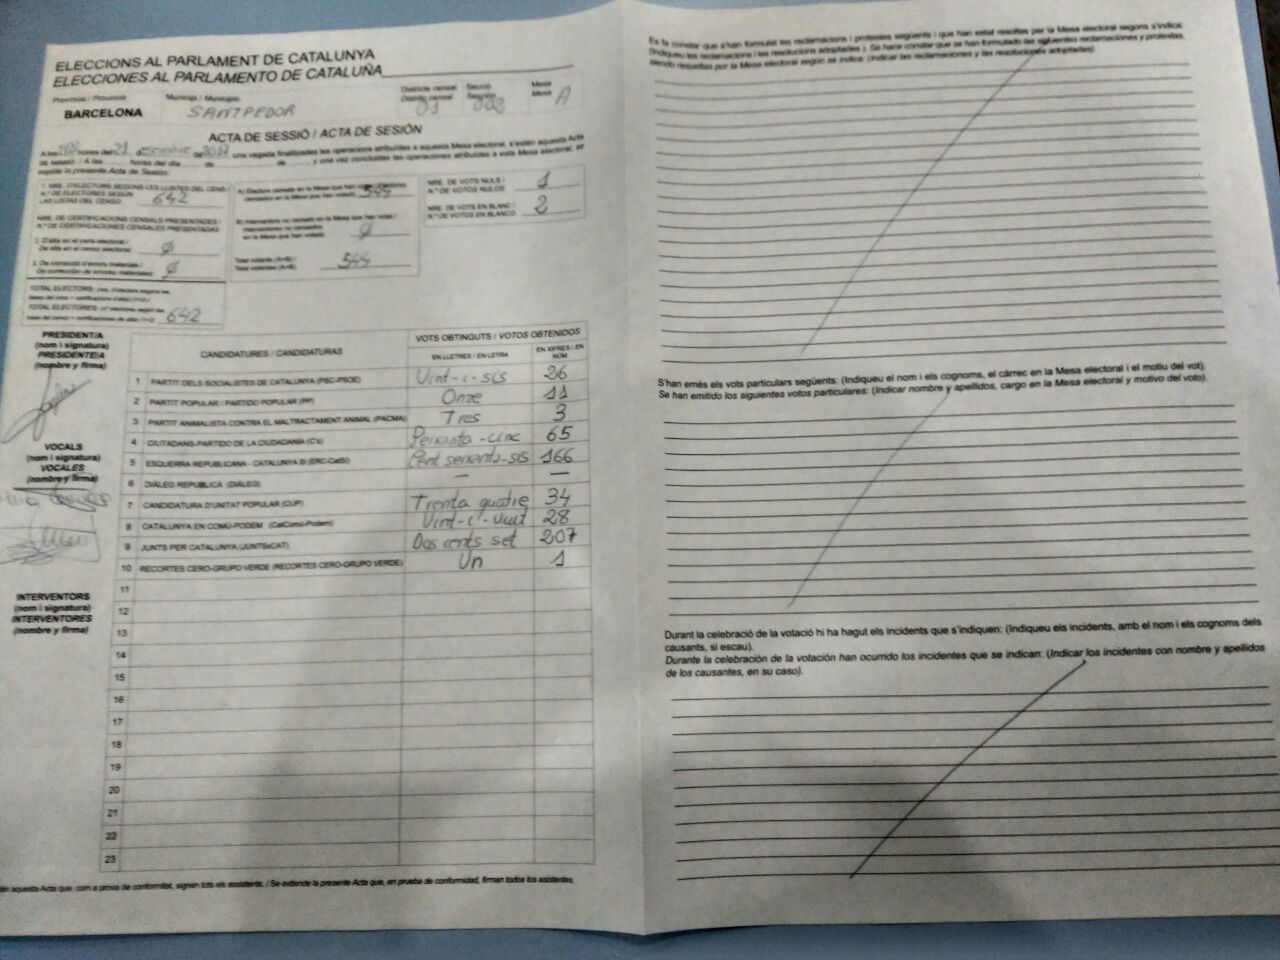 ELECCIONS AL PARLAMENT DE CATALUNYA
ELECCIONES AL PARLAMENTO DE CATALUÑA
Província / Provincia
BARCELONA
Municipi / Municipio
SANTPEDOR
Districte censal
Distrito censal
01
Secció
Sección
002
Mesa
Mesa
A
ACTA DE SESSIÓ / ACTA DE SESIÓN
A les hores del 21 desembre de 2017 una vegada finalitzades les operacions atribuïdes a aquesta Mesa electoral, s'estén aquesta Acta
de sessió. / A las horas del día de de y una vez concluidas las operaciones atribuidas a esta Mesa electoral, se
expide la presente Acta de Sesión.
1. NRE. D'ELECTORS SEGONS LES LLISTES DEL CENS /
N.º DE ELECTORES SEGÚN
LAS LISTAS DEL CENSO
642
NRE. DE CERTIFICACIONS CENSALS PRESENTADES /
N.º DE CERTIFICACIONES CENSALES PRESENTADAS
2. D'alta en el cens electoral /
De alta en el censo electoral
Ø
3. De correcció d'errors materials /
De corrección de errores materiales
Ø
TOTAL ELECTORS
TOTAL ELECTORES
642
A) Electors censats en la Mesa que han votat
censados en la Mesa que han votado
544
B) Interventors no censats en la Mesa que han votat /
Interventores no censados
en la Mesa que han votado
Ø
Total votants (A+B) /
Total votantes (A+B)
544
NRE. DE VOTS NULS /
N.º DE VOTOS NULOS
1
NRE. DE VOTS EN BLANC /
N.º DE VOTOS EN BLANCO
2
PRESIDENT/A
(nom i signatura)
PRESIDENTE/A
(nombre y firma)
VOCALS
(nom i signatura)
VOCALES
(nombre y firma)
INTERVENTORS
(nom i signatura)
INTERVENTORES
(nombre y firma)
CANDIDATURES / CANDIDATURAS
VOTS OBTINGUTS / VOTOS OBTENIDOS
EN LLETRES / EN LETRA
EN XIFRES / EN NÚM
1 PARTIT DELS SOCIALISTES DE CATALUNYA (PSC-PSOE) Vint-i-sis 26
2 PARTIT POPULAR / PARTIDO POPULAR (PP) Onze 11
3 PARTIT ANIMALISTA CONTRA EL MALTRACTAMENT ANIMAL (PACMA) Tres 3
4 CIUTADANS-PARTIDO DE LA CIUDADANÍA (C's) Seixanta-cinc 65
5 ESQUERRA REPUBLICANA - CATALUNYA SÍ (ERC-CatSí) Cent seixanta-sis 166
6 DIÀLEG REPÚBLICA (DIÀLEG) — —
7 CANDIDATURA D'UNITAT POPULAR (CUP) Trenta quatre 34
8 CATALUNYA EN COMÚ-PODEM (CatComú-Podem) Vint-i-vuit 28
9 JUNTS PER CATALUNYA (JUNTSxCAT) Dos cents set 207
10 RECORTES CERO-GRUPO VERDE (RECORTES CERO-GRUPO VERDE) Un 1
11
12
13
14
15
16
17
18
19
20
21
22
23
aquesta Acta que, com a prova de conformitat, signen tots els assistents. / Se extiende la presente Acta que, en prueba de conformidad, firman todos los asistentes.
Es fa constar que s'han formulat les reclamacions i protestes següents i que han estat resoltes per la Mesa electoral segons s'indica:
(Indiqueu les reclamacions i les resolucions adoptades). Se hace constar que se han formulado las siguientes reclamaciones y protestas,
siendo resueltas por la Mesa electoral según se indica: (Indicar las reclamaciones y las resoluciones adoptadas).
S'han emès els vots particulars següents: (Indiqueu el nom i els cognoms, el càrrec en la Mesa electoral i el motiu del vot).
Se han emitido los siguientes votos particulares: (Indicar nombre y apellidos, cargo en la Mesa electoral y motivo del voto).
Durant la celebració de la votació hi ha hagut els incidents que s'indiquen: (Indiqueu els incidents, amb el nom i els cognoms dels
causants, si escau).
Durante la celebración de la votación han ocurrido los incidentes que se indican: (Indicar los incidentes con nombre y apellidos
de los causantes, en su caso).